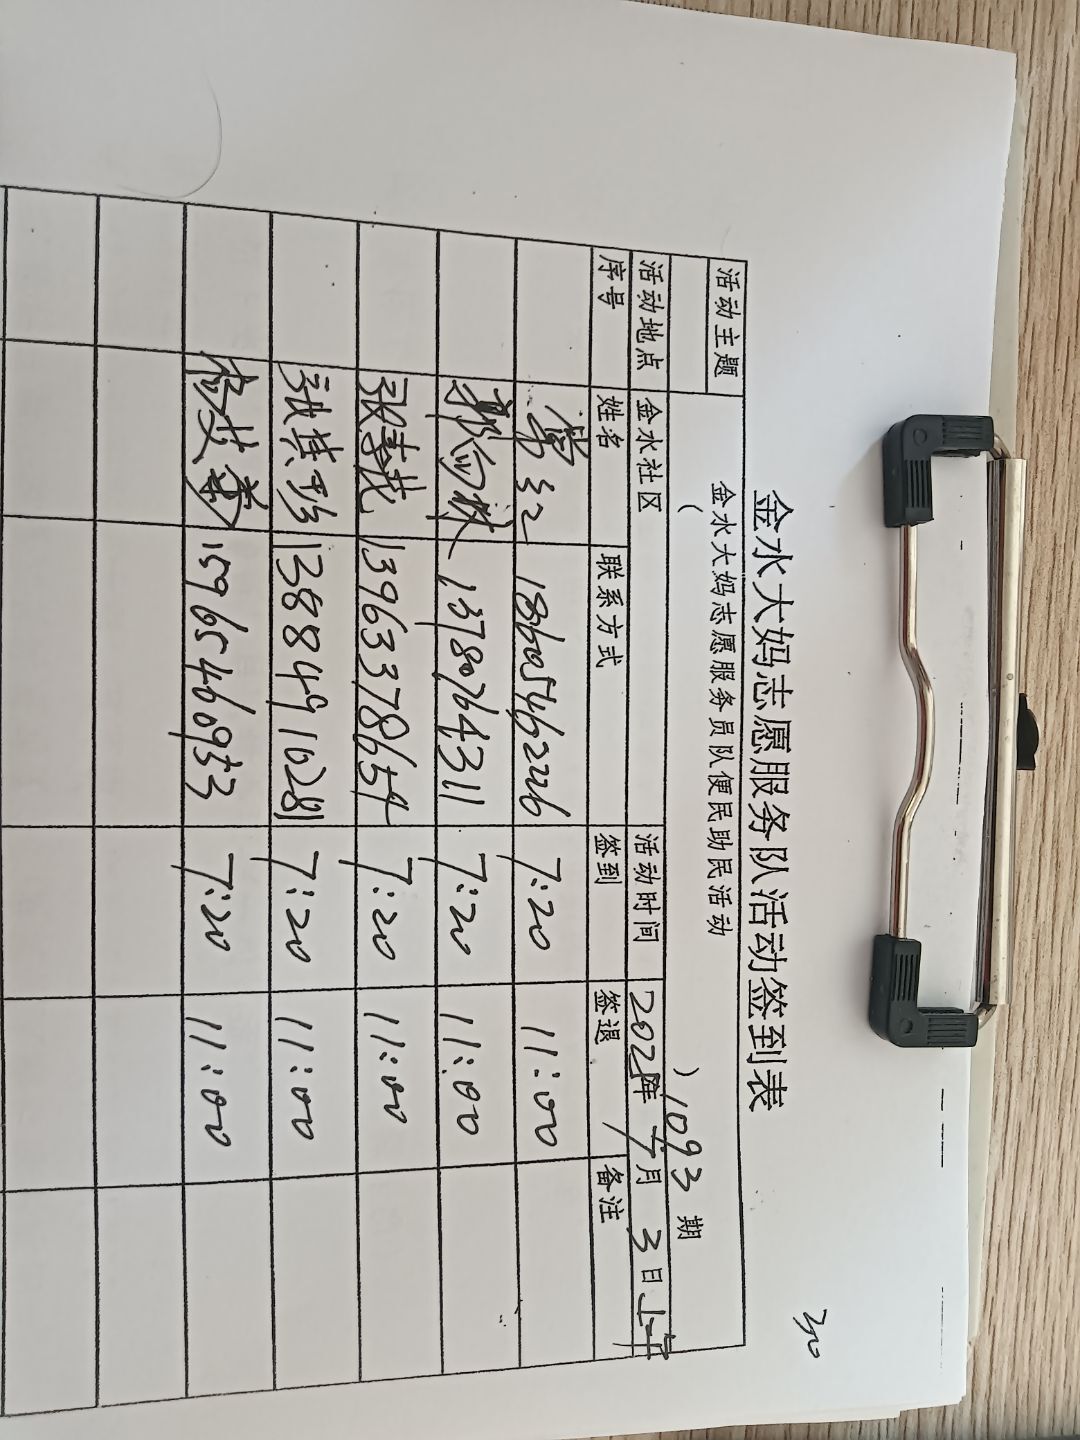 金水大妈志愿服务队活动签到表
活动主题 金水大妈志愿服务员队便民助民活动
( ) 1093 期
活动地点 金水社区 活动时间 202 年 月 3 日 上午
序号 姓名 联系方式 签到 签退 备注
常红 18605462226 7:20 11:00
13780764311 7:20 11:00
13963378654 7:20 11:00
张其珍 13884910281 7:20 11:00
15965460953 7:20 11:00